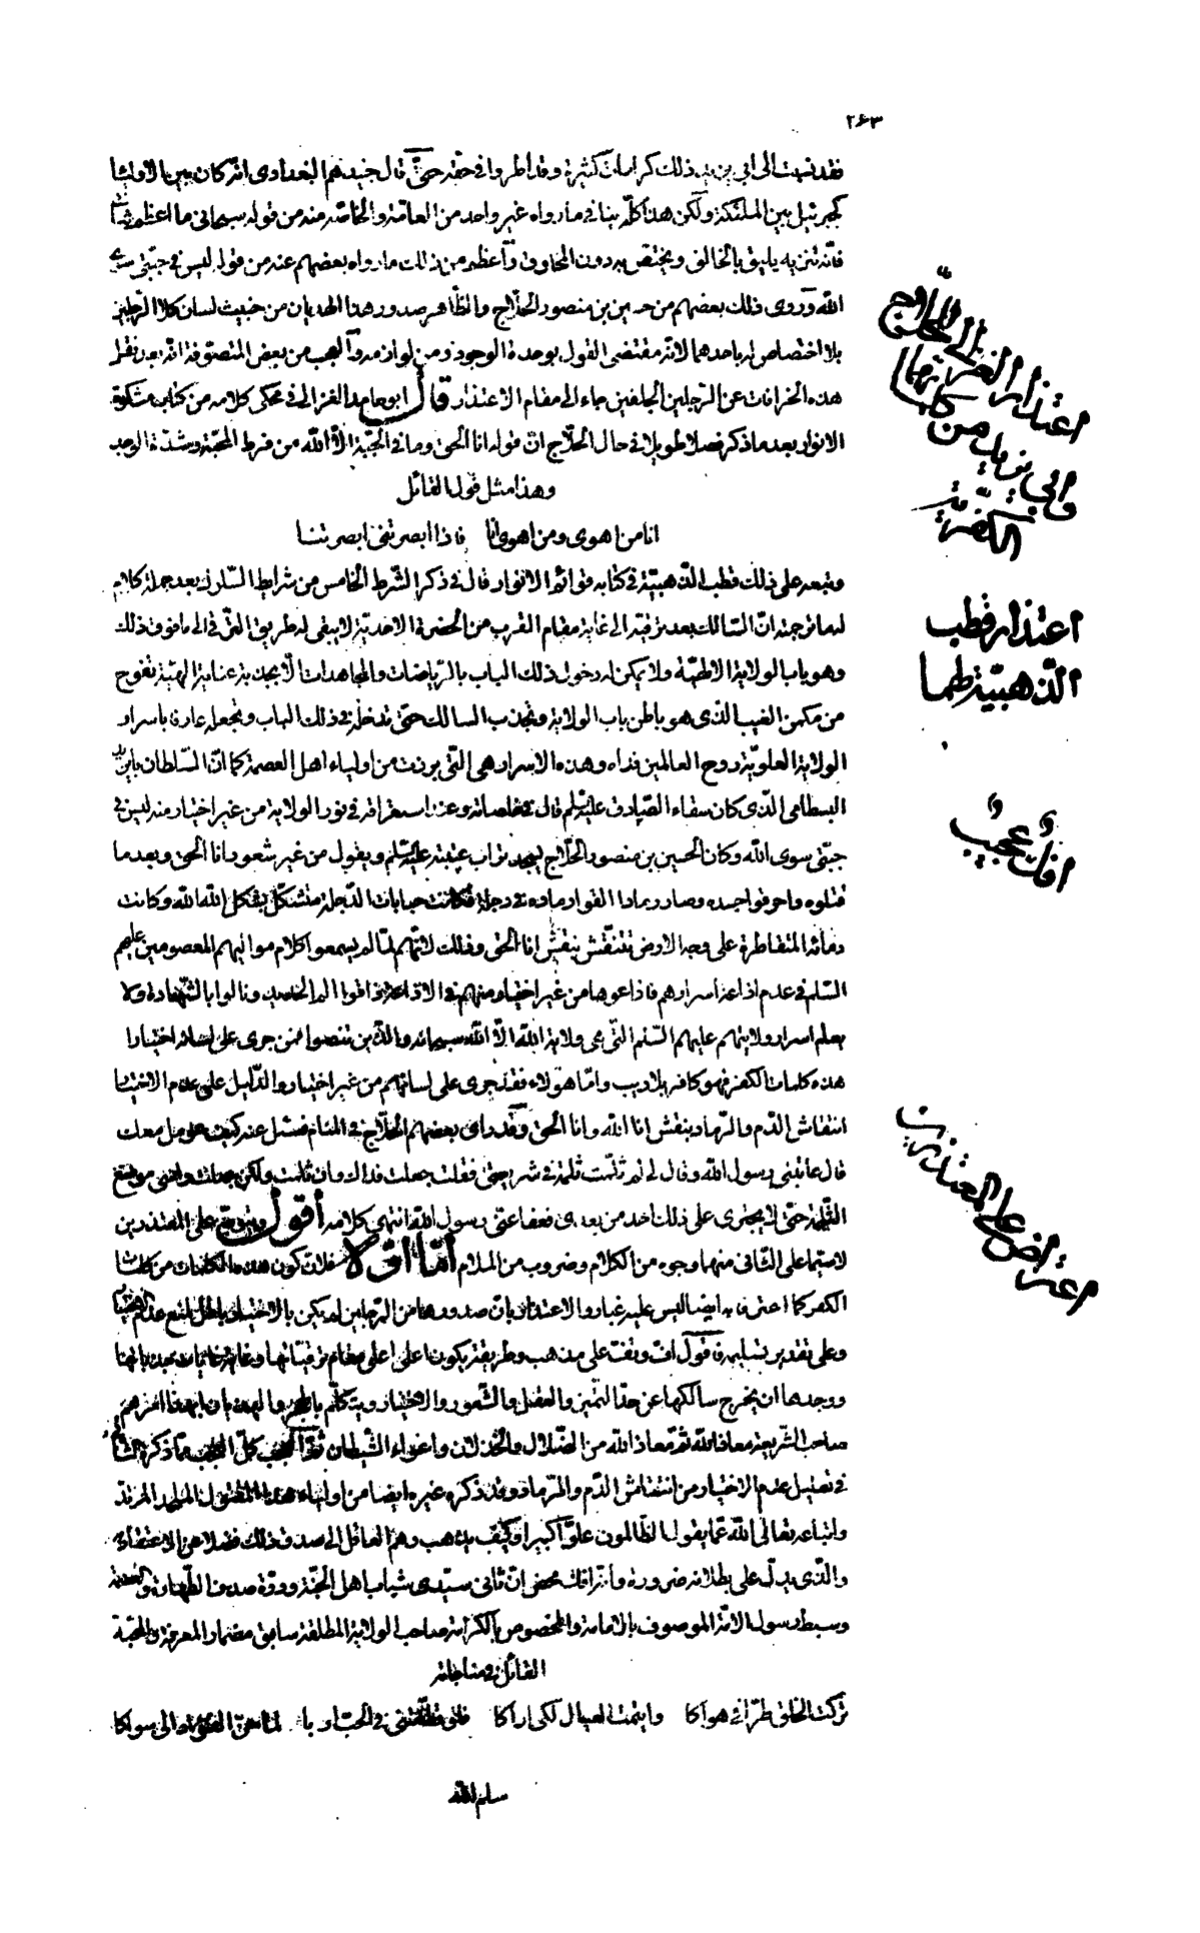 ٢٦٣
فقد نسبت الى ابي يزيد ذلك كرامات كثيرة وقد اطروا في حقه حتى قال جنيدهم البغدادى انه كان بين الاولياء
كجبرئيل بين الملئكة ولكن هذا كله ينافي ما رواه غير واحد من العامة والخاصة منه من قوله سبحاني ما اعظم شاني
فانه تنزيه يليق بالخالق ويختص به دون المخلوق وأعظم من ذلك ما رواه بعضهم عنه من قوله ليس في جبتي سوى
الله وروى ذلك بعضهم من حسين بن منصور الحلاج والظاهر صدور هذا الهذيان من خبيث لسان كلا الرجلين
بلا اختصاص له باحدهما لانه مقتضى القول بوحدة الوجود ومن لوازمه والعجب من بعض المتصوفة انه بعد نقل
هذه الخرافات عن الرجلين الجلفين جاء الى مقام الاعتذار قال ابو حامد الغزالى في محكى كلامه من كتاب مشكوة
الانوار بعد ما ذكر فصلا طويلا في حال الحلاج ان قوله انا الحق وما في الجبة الا الله من فرط المحبة وشدة الوجد
وهذا مثل قول القائل
انا من اهوى ومن اهوى انا فاذا ابصرتنى ابصرتنا
وتبعه على ذلك قطب الذهبية في كتابه فوائح الانوار قال في ذكر الشرط الخامس من شرايط السلوك بعد جملة كلام
له ما ترجمته ان السالك بعد ترقيه الى غاية مقام القرب من الحضرة الاحدية لا يبقى له طريق الترقى الى ما فوق ذلك
وهو باب الولاية الالهية ولا يمكن له دخول ذلك الباب بالرياضات والمجاهدات الا بجذبة عناية الهية تفوح
من مكمن الغيب الذى هو باطن باب الولاية وتجذب السالك حتى تدخله في ذلك الباب وتجعله عارفا باسرار
الولاية العلوية روح العالمين فداه وهذه الاسرار هى التى برزت من اولياء اهل العصمة كما ان السلطان بايزيد
البسطامى الذى كان سقاء الصادق عليه السلم قال في خلصاته وعند استغراقه في نور الولاية من غير اختيار منه ليس في
جبتى سوى الله وكان الحسين بن منصور الحلاج يسجد تراب عتبته عليه السلم ويقول من غير شعور انا الحق وبعد ما
قتلوه واحرقوا جسده وصار رمادا القوا رماده في دجلة فكانت حبابات الدجلة متشكل بشكل الله الله وكانت
دمائه المتقاطرة على وجه الارض تتنقش بنقش انا الحق وذلك لانهم لما لم يسمعوا كلام مواليهم المعصومين عليهم
السلم في عدم اذاعة اسرارهم فاذاعوها من غير اختيار منهم في الاذاعة ذاقوا الم الحديد ونالوا بالشهادة ولا
يعلم اسرار ولايتهم عليهم السلم التى هى ولاية الله الا الله سبحانه والذين تنصوا فمن جرى على لسانه اختيارا
هذه كلمات الكفر فهو كافر بلا ريب واما هؤلاء فقد جرى على لسانهم من غير اختيار والدليل على عدم الاختيار
انتقاش الدم والرماد بنقش انا الله وانا الحق وقد راى بعضهم الحلاج في المنام فسئل عنه كيف عومل معك
قال عاتبنى رسول الله وقال لى لم ثلمت ثلمة في شريعتى فقلت جعلت فداك وان ثلمت ولكن جعلت راسى موضع
الثلمة حتى لا يجترى على ذلك احد من بعدى فعفا عنى رسول الله انتهى كلامه أقول ويتوجه على المعتذرين
لاسيما على الثانى منهما وجوه من الكلام وضروب من الملام أما اولا فلان كون هذه الكلمات من كلمات
الكفر كما اعترف به ايضا ليس عليه غبار والاعتذار بان صدورها من الرجلين لم يكن بالاختيار باطل لمنع عدم الاختيار
وعلى تقدير تسليمه فأقول اف وتف على مذهب وطريقة يكون اعلى اعلى مقام ترقياتها وغاية غايات جذباتها
ووجدها ان يخرج سالكها عن حد التميز والعقل والشعور والاختيار ويتكلم بالهجر والهذيان ايهذا امرهم
صاحب الشريعة معاذ الله ثم معاذ الله من الضلال والخذلان واغواء الشيطان ثم العجب كل العجب مما ذكره الثانى
في تعليل عدم الاختيار من انتقاش الدم والرماد وقد ذكره غيره ايضا من اولياء هذا المقتول الملحد المرتد
واتباعه تعالى الله عما يقول الظالمون علوا كبيرا وكيف يذهب وهم العاقل الى صدق ذلك فضلا عن الاعتقاد به
والذى يدل على بطلانه ضرورة وأنه افك محض ان ثانى سيدى شباب اهل الجنة ودرة صدف الطهارة والعصمة
وسبط رسول الامة الموصوف بالامامة والمخصوص بالكرامة صاحب الولاية المطلقة سابق مضمار المعرفة والمحبة
القائل في مناجاته
تركت الخلق طرا في هواكا وايتمت العيال لكى اراكا فلو قطعتنى في الحب اربا لما حن الفؤاد الى سواكا
سلم الله
اعتذار الغزالى للحلاج
وابي يزيد من كلماتهما
الكفرية
اعتذار قطب
الذهبية لهما
افك عجيب
اعتراض على المعتذرين